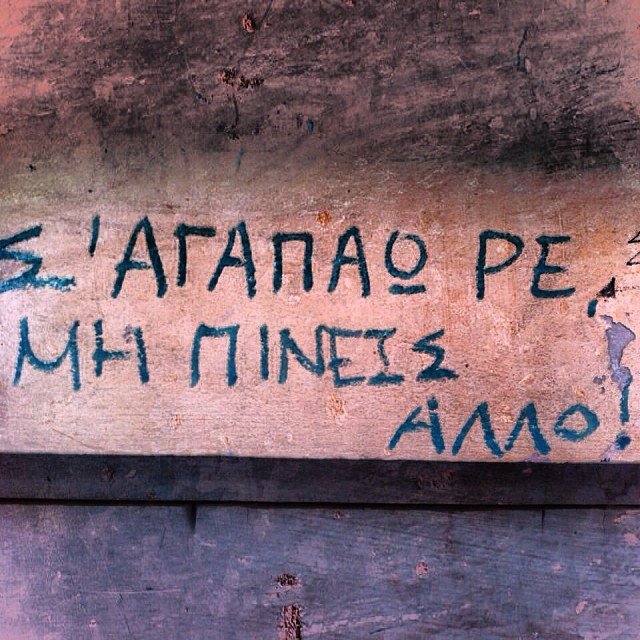 Σ'ΑΓΑΠΑΩ ΡΕ,
ΜΗ ΠΙΝΕΙΣ
ΑΛΛΟ!